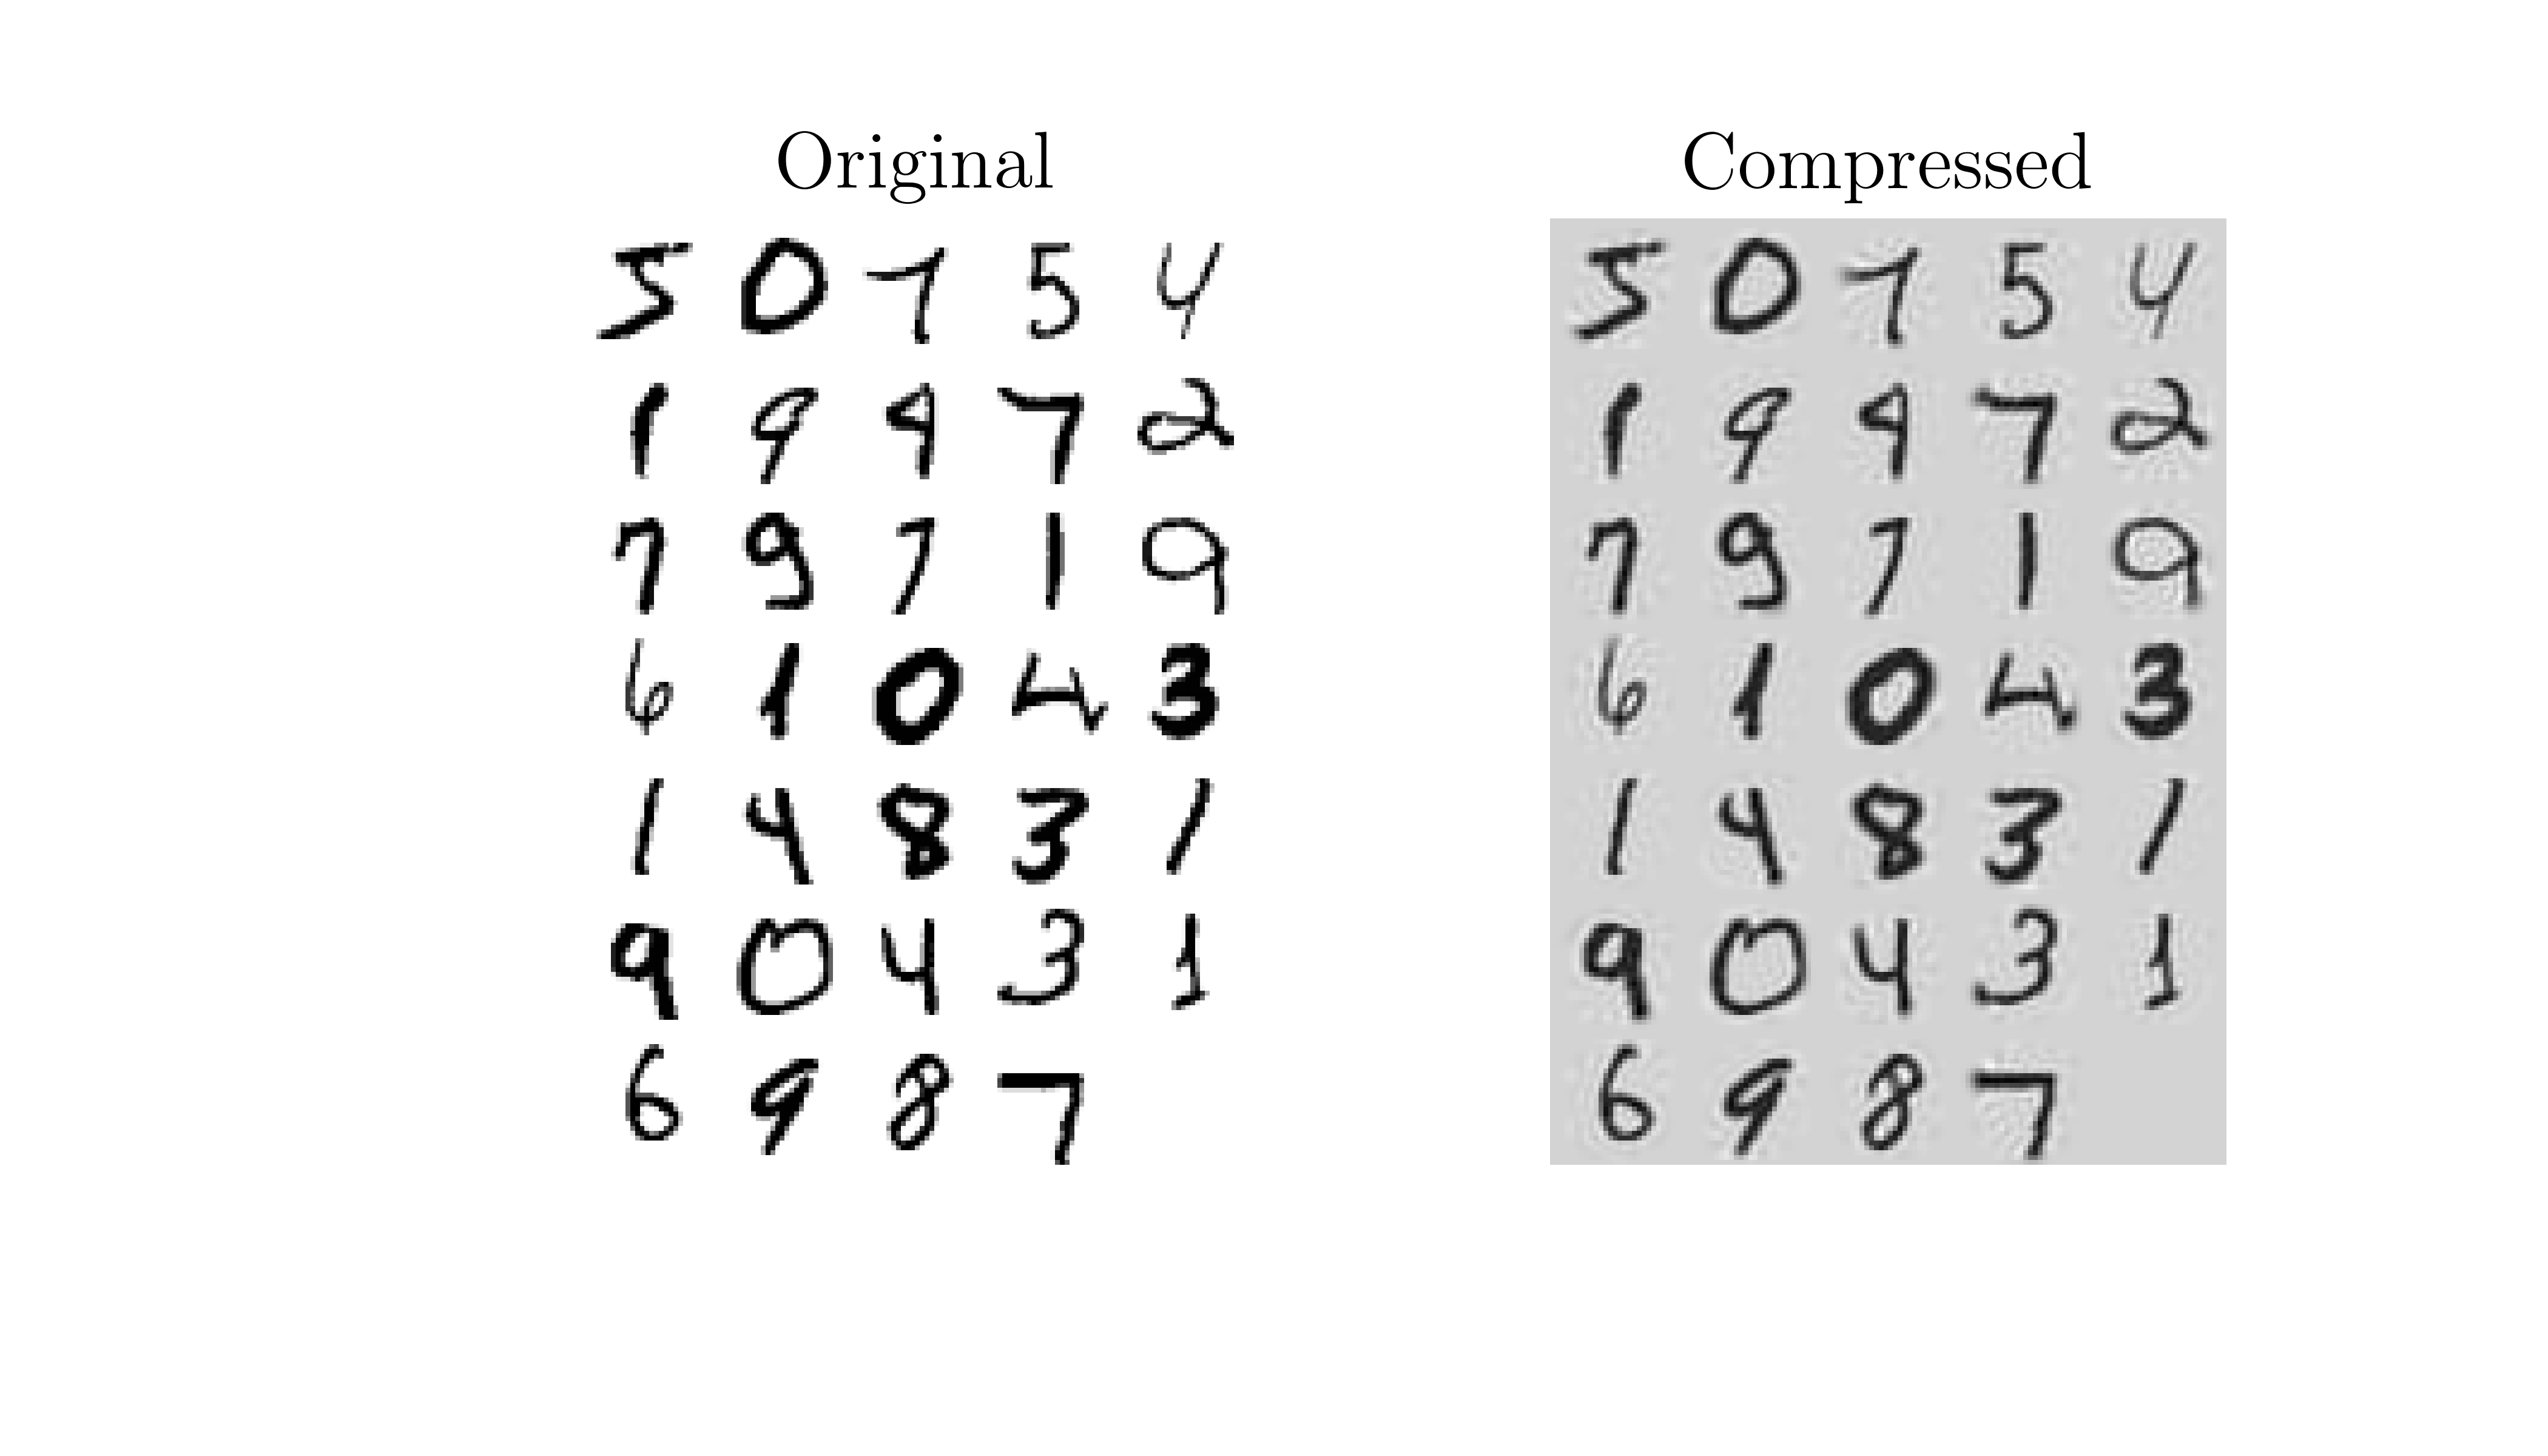 Original
5 0 7 5 4
1 9 9 7 2
7 9 7 1 9
6 1 0 4 3
1 4 8 3 1
9 0 4 3 1
6 9 8 7
Compressed
5 0 7 5 4
1 9 9 7 2
7 9 7 1 9
6 1 0 4 3
1 4 8 3 1
9 0 4 3 1
6 9 8 7